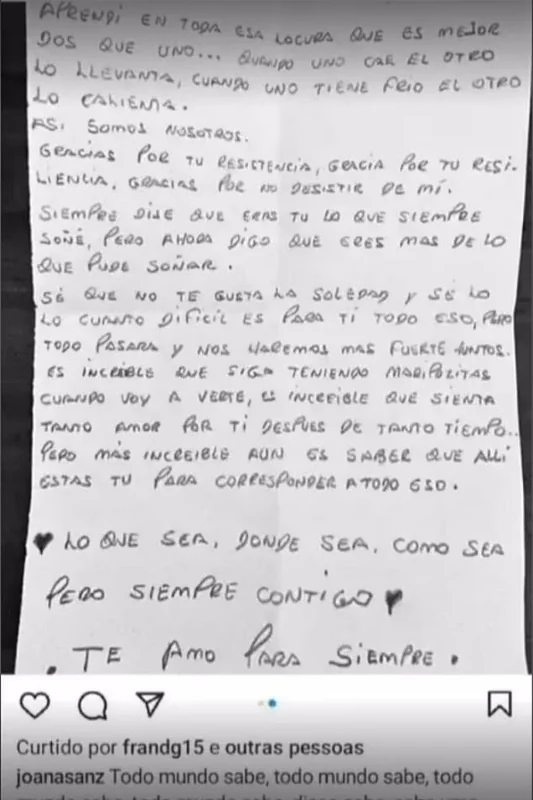 APRENDÍ EN TODA ESA LOCURA QUE ES MEJOR
DOS QUE UNO... QUANDO UNO CAE EL OTRO
LO LLEVANTA, CUANDO UNO TIENE FRIO EL OTRO
LO CALIENTA.
ASI SOMOS NOSOTROS.
GRACIAS POR TU RESISTENCIA, GRACIA POR TU RESI-
LIENCIA, GRACIAS POR NO DESISTIR DE MÍ.
SIEMPRE DIJE QUE ERAS TU LO QUE SIEMPRE
SOÑÉ, PERO AHORA DIGO QUE ERES MAS DE LO
QUE PUDE SOÑAR.
SÉ QUE NO TE GUSTA LA SOLEDAD Y SÉ LO
LO CUANTO DIFICIL ES PARA TI TODO ESO, PERO
TODO PASARA Y NOS HAREMOS MAS FUERTE JUNTOS.
ES INCREÍBLE QUE SIGA TENIENDO MARIPOZITAS
CUANDO VOY A VERTE, ES INCREÍBLE QUE SIENTA
TANTO AMOR POR TI DESPUES DE TANTO TIEMPO..
PERO MÁS INCREIBLE AUN ES SABER QUE ALLÍ
ESTAS TU PARA CORRESPONDER A TODO ESO.
♥ LO QUE SEA, DONDE SEA, COMO SEA
PERO SIEMPRE CONTIGO ♥
. TE AMO PARA SIEMPRE.
Curtido por frandg15 e outras pessoas
joanasanz Todo mundo sabe, todo mundo sabe, todo